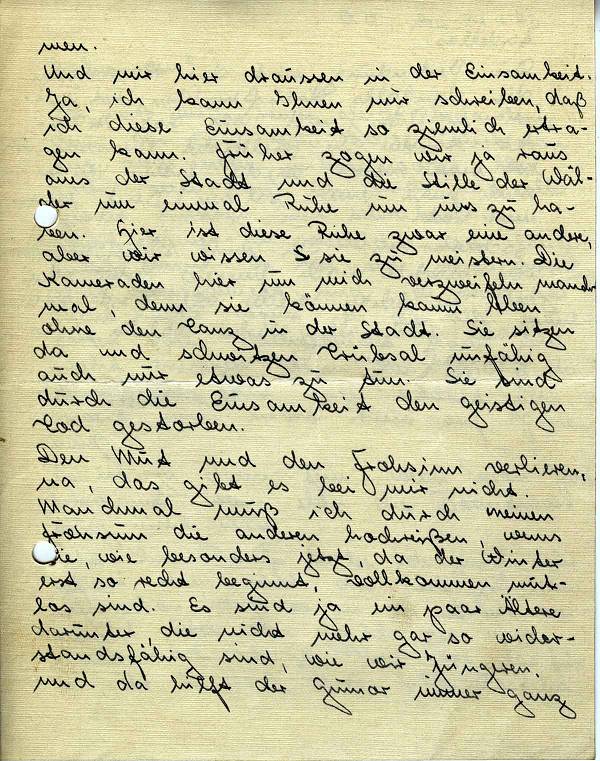 men.
Und mir hier draussen in der Einsamkeit.
Ja, ich kann Ihnen nur schreiben, daß
ich diese Einsamkeit so ziemlich ertra-
gen kann. Früher zogen wir ja raus
aus der Stadt und die Stille der Wäl-
der um einmal Ruhe um uns zu ha-
ben. Hier ist diese Ruhe zwar eine andere,
aber wir wissen sie zu meistern. Die
Kameraden hier um mich verzweifeln manch-
mal, denn sie können kaum leben
ohne den Tanz in der Stadt. Sie sitzen
da und schwitzen Trübsal unfähig
auch nur etwas zu tun. Sie sind
durch die Einsamkeit den geistigen
Tod gestorben.
Den Mut und den Frohsinn verlieren,
na, das gibt es bei mir nicht.
Manchmal muß ich durch meinen
Frohsinn die anderen hochreißen, wenns
sie, wie besonders jetzt, da der Winter
erst so recht beginnt, vollkommen mut-
los sind. Es sind ja ein paar Ältere
darunter, die nicht mehr gar so wider-
standsfähig sind, wie wir Jüngeren.
und da hilft der Humor immer ganz